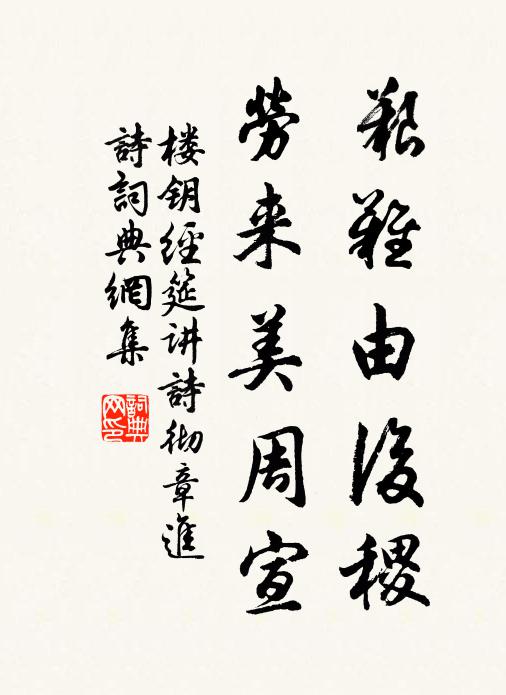 艱難由後稷
勞來美周宣
楼钥經筵讲詩彻章進
詩詞典網集
詞典
网印